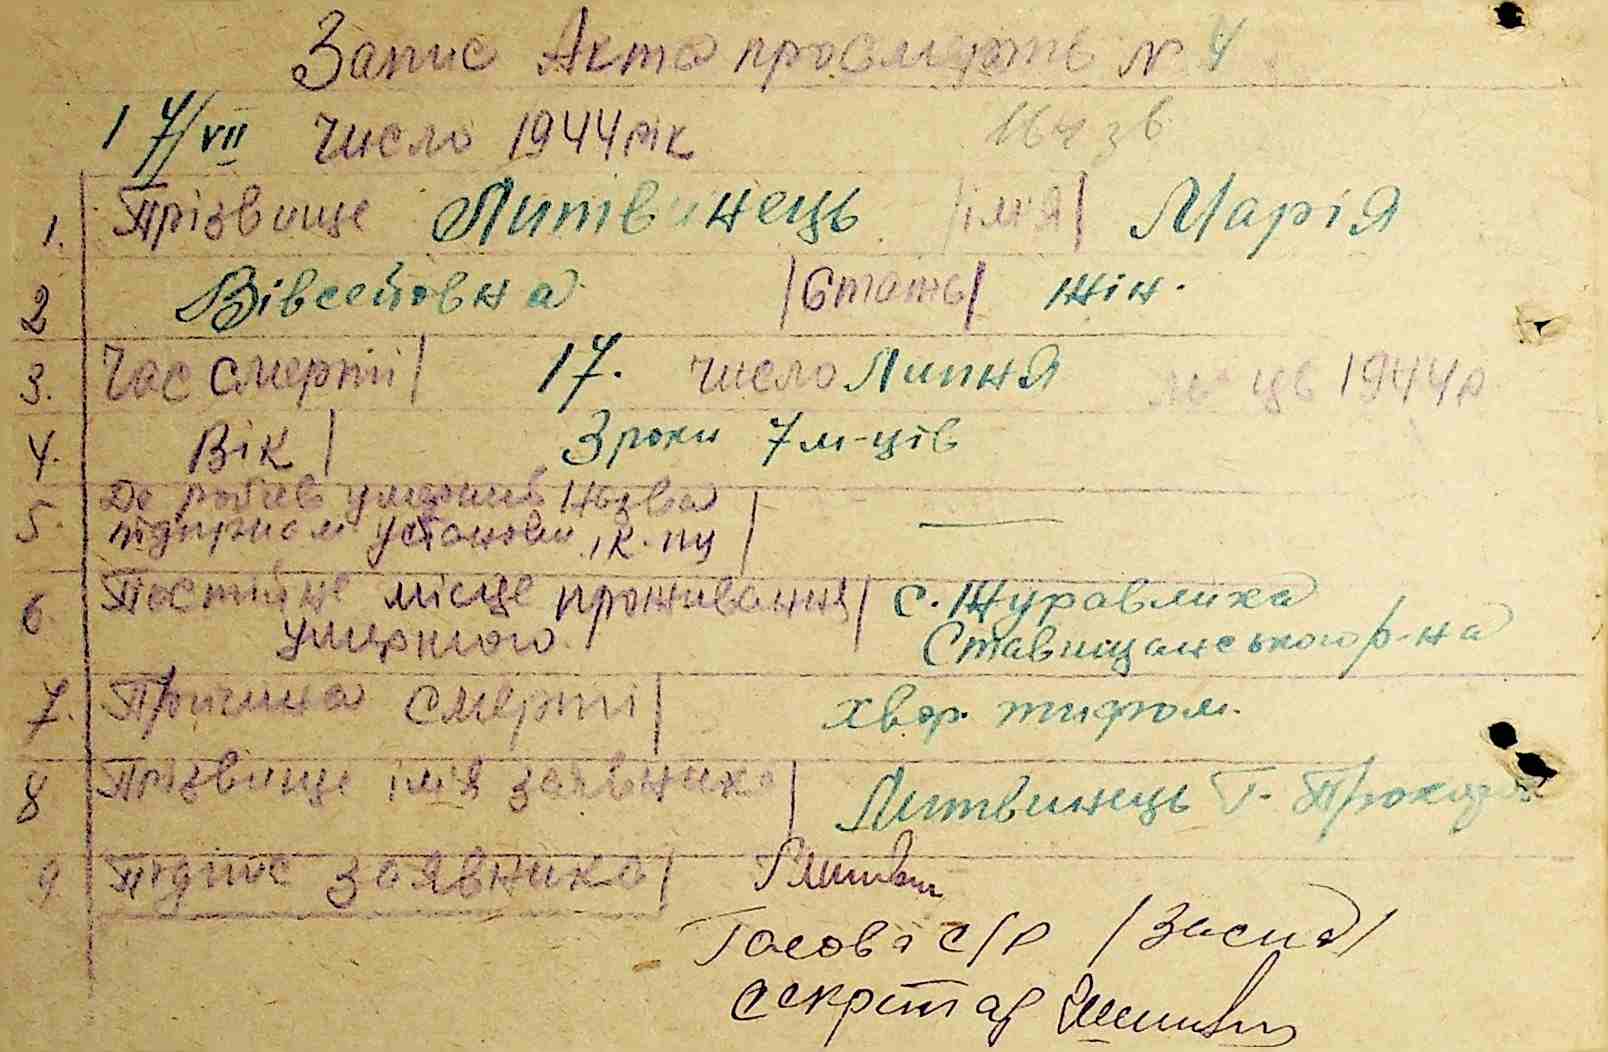 Запис Акта про смерть N 4
17/VII Число 1944 рік
1. Прізвище Литвинець /ім'я/ Марія
2 Вівсейовна /Стать/ жін.
3. Час смерті/ 17. число Липня м-ць 1944 р
4. Вік/ 3 роки 7 м-ців
5. Де робив умерший назва
підприєм установи, к-пу / —
6. Постійне місце проживання/ с. Журавлиха
умершого. Ставищанського р-на
7. Причина смерті/ хвор. тифом.
8 Прізвище ім'я заявника/ Литвинець Т.
9 Підпис заявника/
Голова с/р /Заєна/
секретар